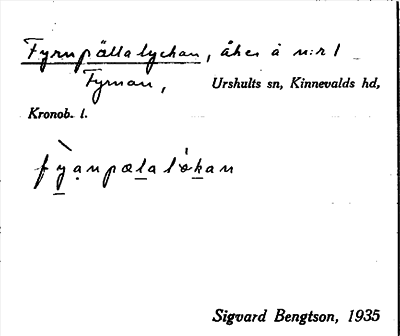 Fyrnpällalyckan, åker å n:r 1
Fyrnan, Urshults sn, Kinnevalds hd,
Kronob. l.
Sigvard Bengtson, 1935